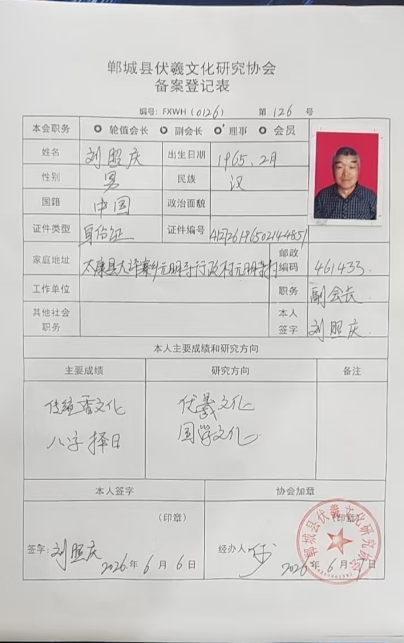 郸城县伏羲文化研究协会
备案登记表
编号: FXWH (0126) 第 126 号
本会职务 轮值会长 副会长 理事 会员
姓名 刘照庆 出生日期 1965.2月
性别 男 民族 汉
国籍 中国 政治面貌
证件类型 身份证 证件编号
家庭地址 太康县大许寨乡元明寺行政村元明寺村 邮政编码 461433
工作单位 职务 副会长
其他社会职务 本人签字 刘照庆
本人主要成绩和研究方向
主要成绩 研究方向 备注
传统香文化 伏羲文化
八字择日 国学文化
本人签字 协会加章
(印章) (印章)
签字: 刘照庆 经办人
2026年6月6日 2026年6月 日
郸城县伏羲文化研究协会